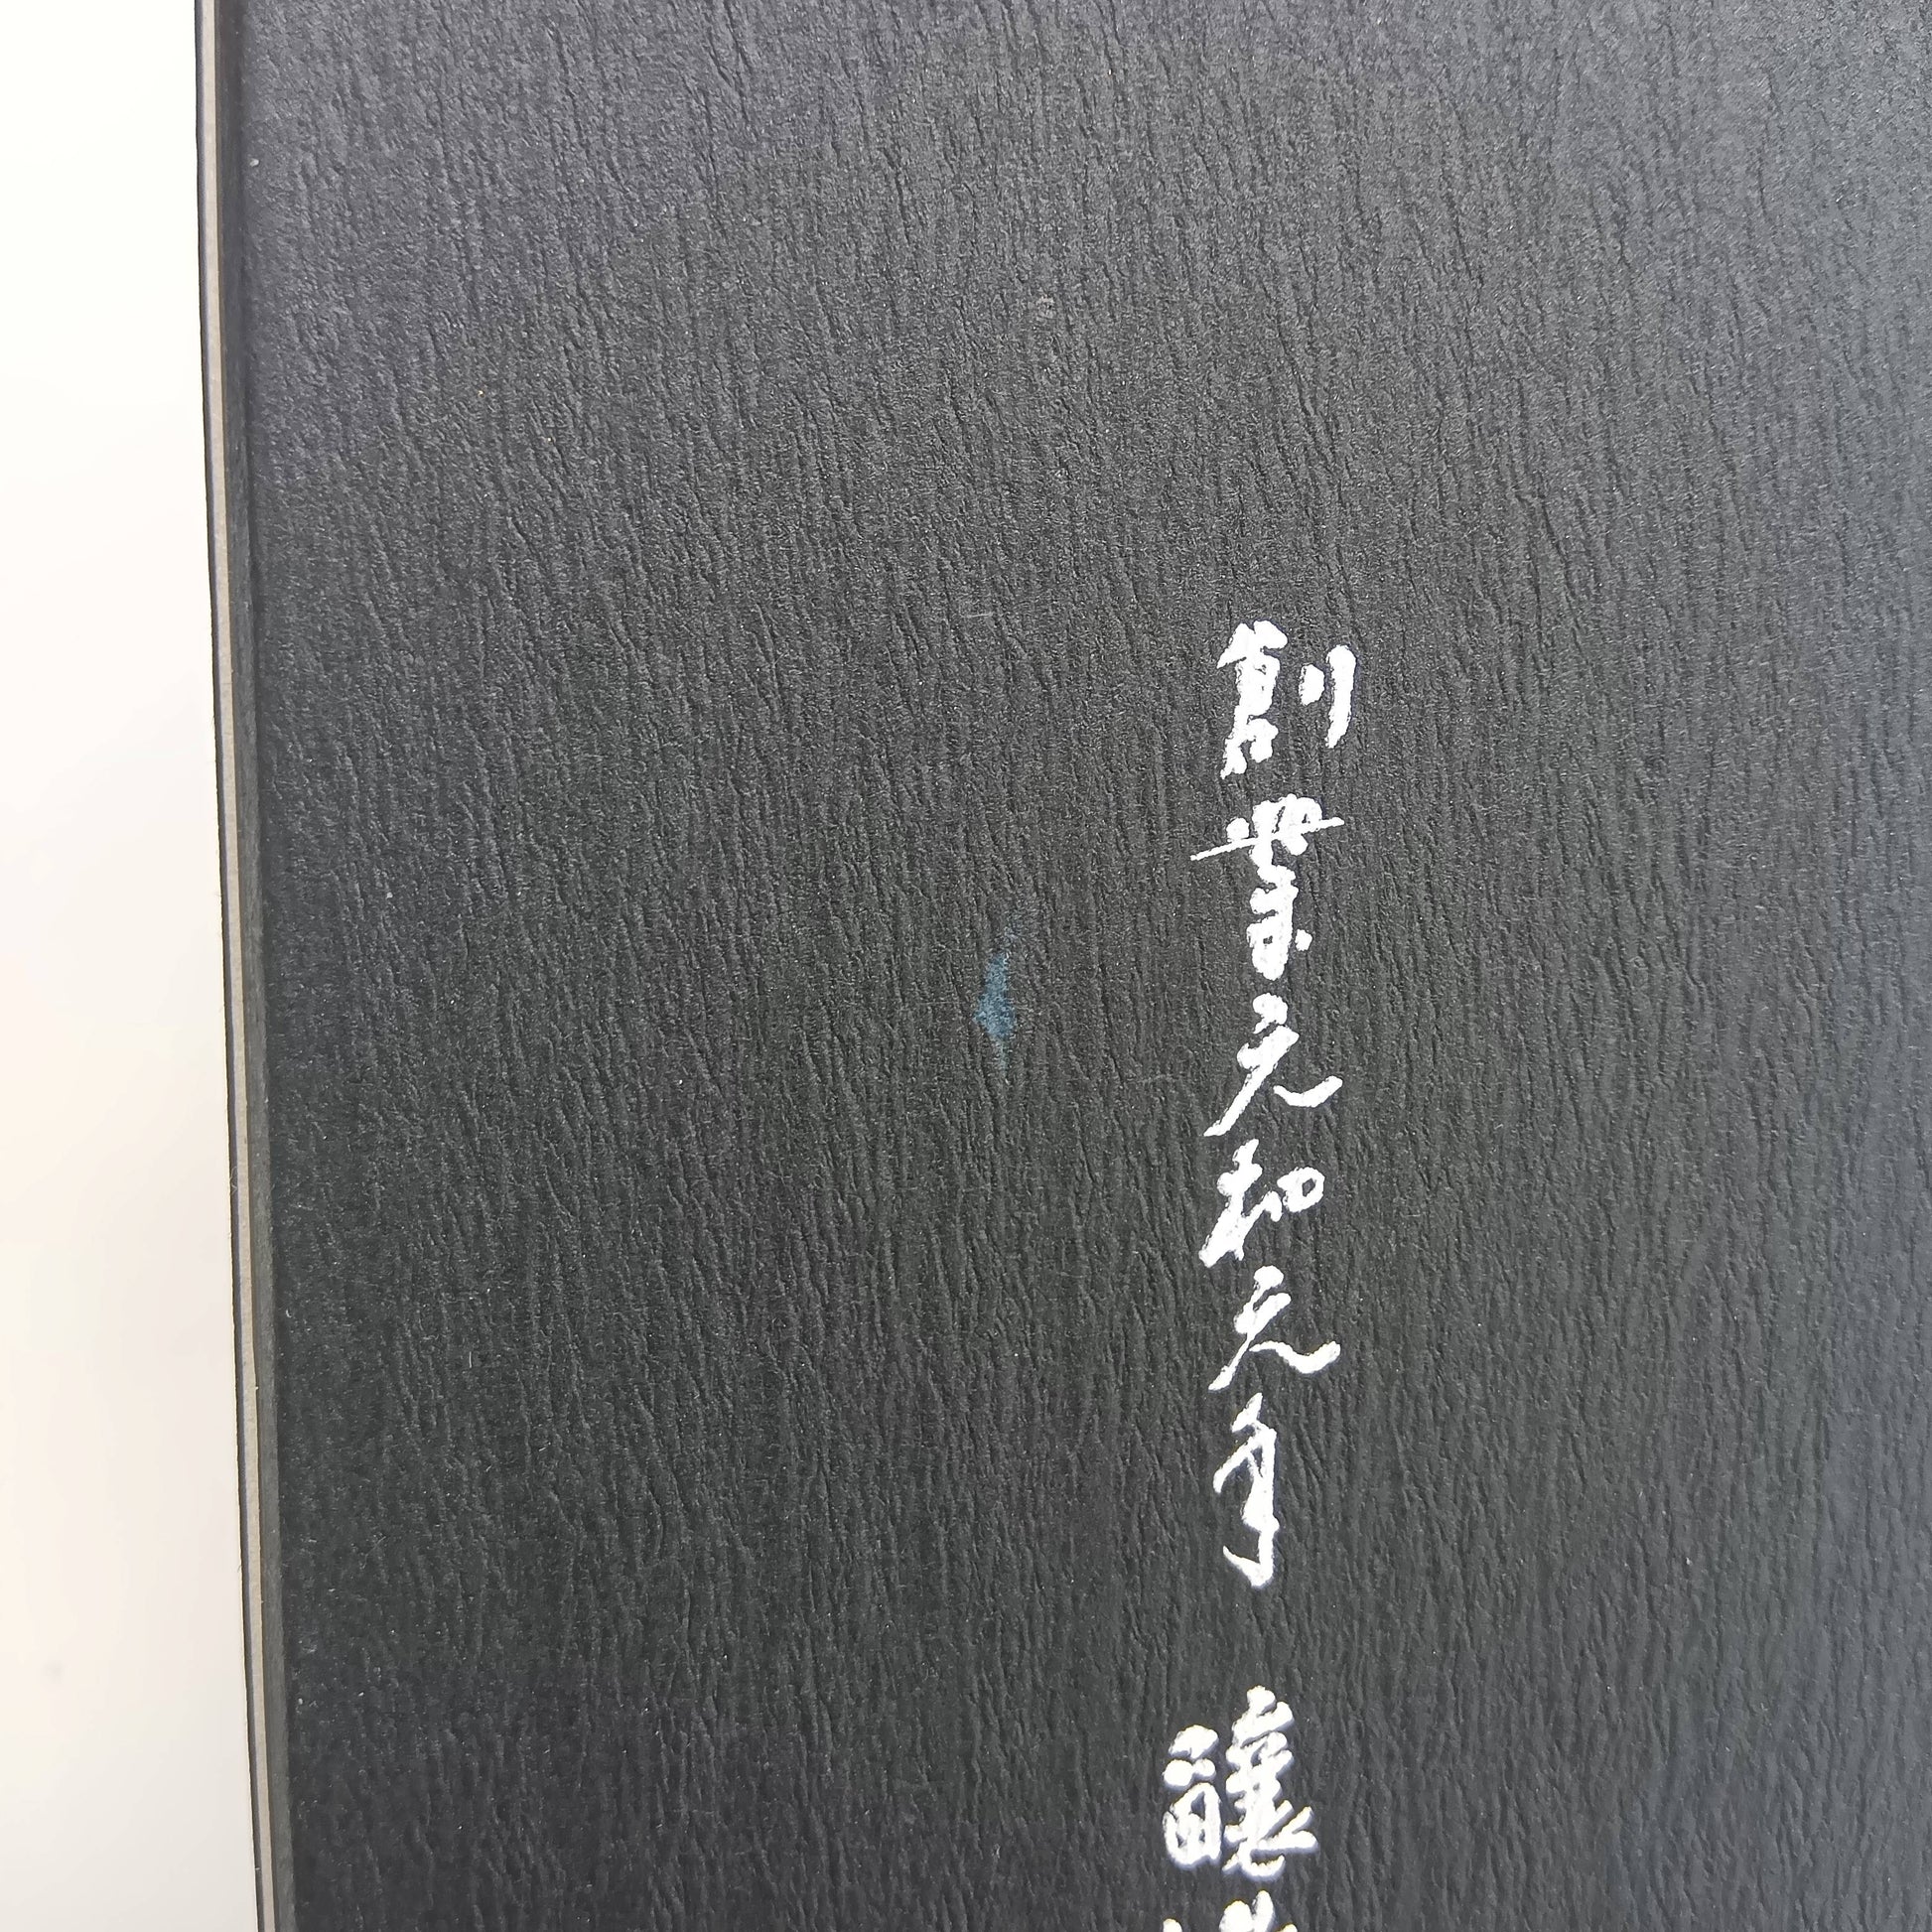 創業元和元年 醸